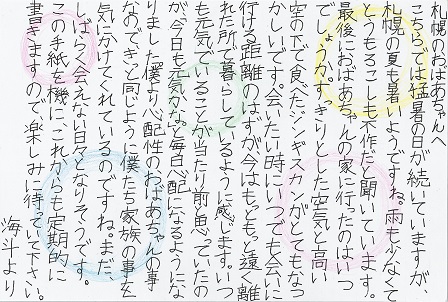 札幌のおばあちゃんへ
こちらでは猛暑の日が続いていますが、
札幌の夏も暑いようですね。雨も少なくて
とうもろこしも不作だと聞いています。
最後におばあちゃんの家に行ったのはいつ
でしょうか。すっきりとした空気と高い
空の下で食べたジンギスカンがとてもなつ
かしいです。会いたい時にいつでも会いに
行ける距離のはずが、今はもっともっと遠く離
れた所で暮らしているように感じます。いつ
も元気でいることが当たり前と思っていたの
が、「今日も元気かな」と毎日心配になるようにな
りました。僕より心配性のおばあちゃんの事
なので、きっと同じように僕たち家族の事を
気にかけてくれているのですね。まだ、
しばらく会えない日々となりそうです。
この手紙を機に、これからも定期的に
書きますので、楽しみに待っていて下さい。
海斗より